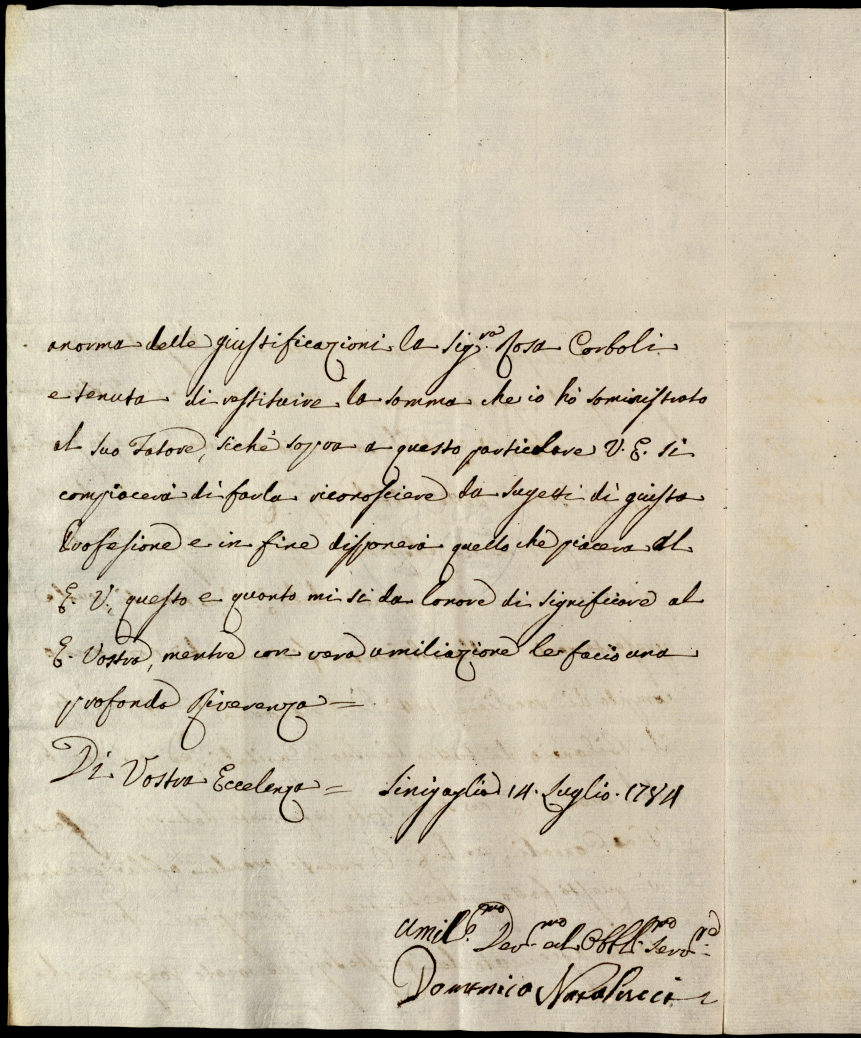 anorma delle giustificazioni la Sig.ra Rosa Corboli
e tenuta di restituire la somma che io hò soministrato
al suo Fatore, sichè sopra a questo particolare V. E. si
compiacerà di farla riconosciere da sugetti di giusta
Profesione e in fine disponerà quello che piacera al
E. V., questo e quanto mi si da lonore di significare al
E. Vostra, mentre con vera umiliazione le facio una
profonda Riverenza =
Di Vostra Eccelenza = Sinigaglia 14. Luglio. 1784
Umil.mo Dev.mo ed Obbl.mo Serv.re
Domenico